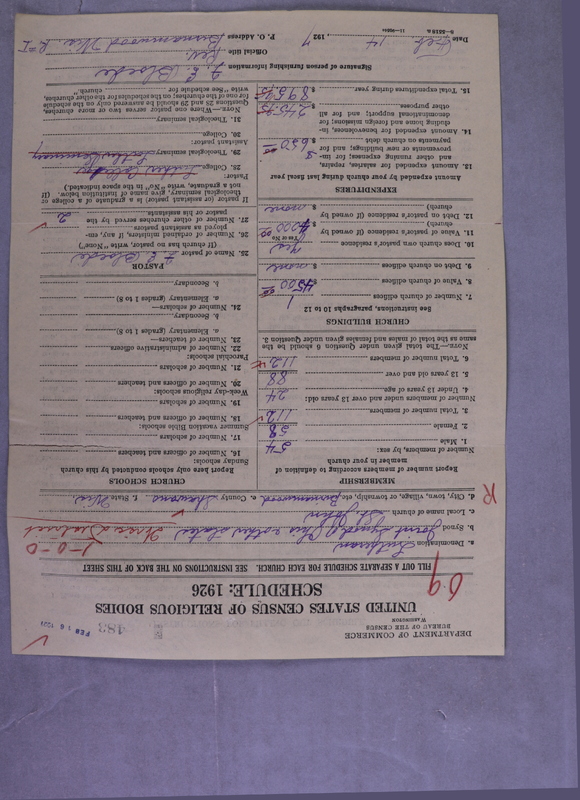 DEPARTMENT OF COMMERCE
BUREAU OF THE CENSUS
WASHINGTON
483
FEB 16 1927
UNITED STATES CENSUS OF RELIGIOUS BODIES
SCHEDULE: 1926
09
FILL OUT A SEPARATE SCHEDULE FOR EACH CHURCH. SEE INSTRUCTIONS ON THE BACK OF THIS SHEET
a. Denomination Lutheran
1-0-0
b. Synod Joint Synod of Ohio & other states
c. Local name of church St. John
d. City, town, village, or township, etc. Birnamwood e. County Shawano f. State Wis.
R
MEMBERSHIP
Report number of members according to definition of member in your church
Number of members, by sex:
1. Male 54
2. Female 58
3. Total number of members 112
Number of members under and over 13 years old:
4. Under 13 years of age 24
5. 13 years old and over 88
6. Total number of members 112
NOTE.—The total given under Question 6 should be the same as the total of males and females given under Question 3.
CHURCH BUILDINGS
See instructions, paragraphs 10 to 12
7. Number of church edifices 1
8. Value of church edifices $ 4500 00
9. Debt on church edifices $ none
10. Does church own pastor's residence Yes
(Yes or No)
11. Value of pastor's residence (if owned by church) $ 4200 00
12. Debt on pastor's residence (if owned by church) $ none
EXPENDITURES
Amount expended by your church during last fiscal year
13. Amount expended for salaries, repairs, and other running expenses; for improvements or new buildings; and for payments on church debt $ 650 00
14. Amount expended for benevolences, including home and foreign missions; for denominational support; and for all other purposes. $ 245.95
15. Total expenditures during year $ 895.95
CHURCH SCHOOLS
Report here only schools conducted by this church
Sunday schools:
16. Number of officers and teachers
17. Number of scholars
Summer vacation Bible schools:
18. Number of officers and teachers
19. Number of scholars
Week-day religious schools:
20. Number of officers and teachers
21. Number of scholars
Parochial schools:
22. Number of administrative officers
23. Number of teachers—
a. Elementary (grades 1 to 8)
b. Secondary
24. Number of scholars—
a. Elementary (grades 1 to 8)
b. Secondary
PASTOR
25. Name of pastor F. E. Bloede
(If church has no pastor, write "None")
26. Number of ordained ministers, if any, employed as assistant pastors.
27. Number of other churches served by the pastor or his assistants. 2
If pastor (or assistant pastor) is a graduate of a college or theological seminary, give name of institution below. (If not a graduate, write "No" in the space indicated.)
Pastor:
28. College
29. Theological seminary
Assistant pastor:
30. College
31. Theological seminary
NOTE.—Where one pastor serves two or more churches, Questions 25 and 26 should be answered only on the schedule for one of the churches; on the schedules for the other churches, write "See schedule for church."
Signature of person furnishing information F. E. Bloede
Official title Rev.
P. O. Address Birnamwood Wis. R #1
Date Feb 14, 1927